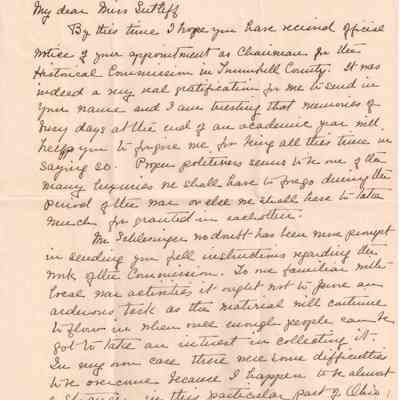 My dear Miss Sutliff
By this time I hope you have received official
notice of your appointment as Chairman for the
Historical Commission in Trumbull County. It was
indeed a very real gratification for me to send in
your name and I am trusting that memories of
busy days at the end of an academic year will
help you to forgive me for being all this time in
saying so. Proper politeness seems to be one of the
many luxuries we shall have to forego during the
period of the war or else we shall have to take
much for granted in each other.
Mr. Schlesinger no doubt has been more prompt
in sending you full instructions regarding the
work of the Commission. To one familiar with
local war activities it ought not to prove an
arduous task as the material will continue
to flow in when once enough people can be
got to take an interest in collecting it.
In my own case there were some difficulties
to be overcome because I happen to be almost
a stranger in this particular part of Ohio